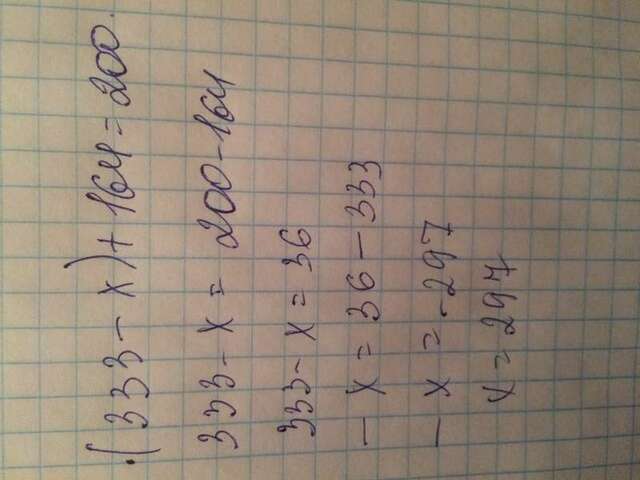 (333 - x) + 164 = 200.
333 - x = 200 - 164
333 - x = 36
- x = 36 - 333
- x = -297
x = 297